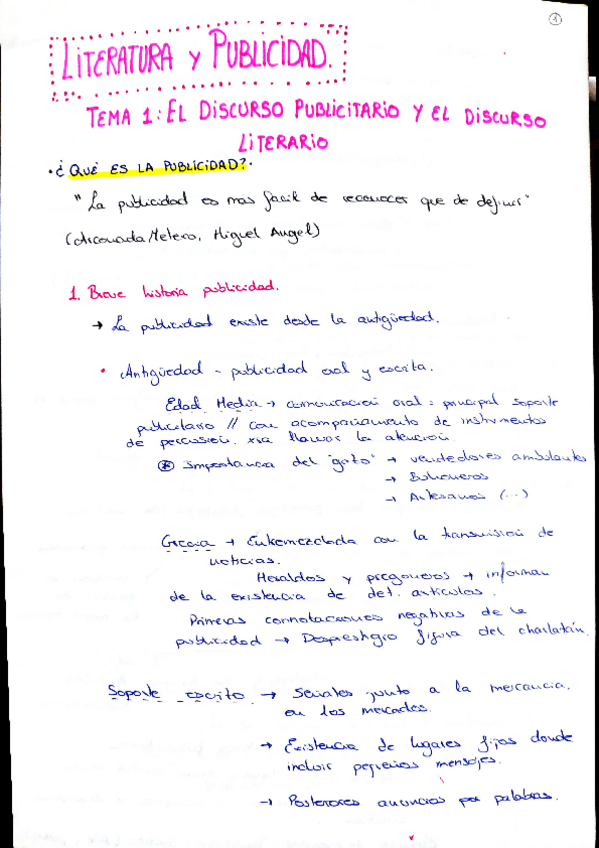 1
LITERATURA Y PUBLICIDAD.
TEMA 1: EL DISCURSO PUBLICITARIO Y EL DISCURSO
LITERARIO
· ¿QUÉ ES LA PUBLICIDAD? ·
"La publicidad es mas facil de reconocer que de definir"
(Arconada Melero, Miguel Angel)
1. Breve historia publicidad.
→ La publicidad existe desde la antigüedad.
• Antigüedad - publicidad oral y escrita.
Edad Media → comunicación oral: principal soporte
publicitario // con acompañamiento de instrumentos
de percusión. xra llamar la atención.
* Importancia del "grito" → vendedores ambulantes
→ Buhoneros
→ Artesanos (...)
Grecia → Entremezclada con la transmisión de
noticias.
Heraldos y pregoneros → informan
de la existencia de det. artículos.
Primeras connotaciones negativas de la
publicidad → Desprestigio figura del charlatán.
Soporte escrito → Señales junto a la mercancía.
en los mercados.
→ Existencia de lugares fijos donde
incluir pequeños mensajes.
→ Posteriores anuncios por palabras.